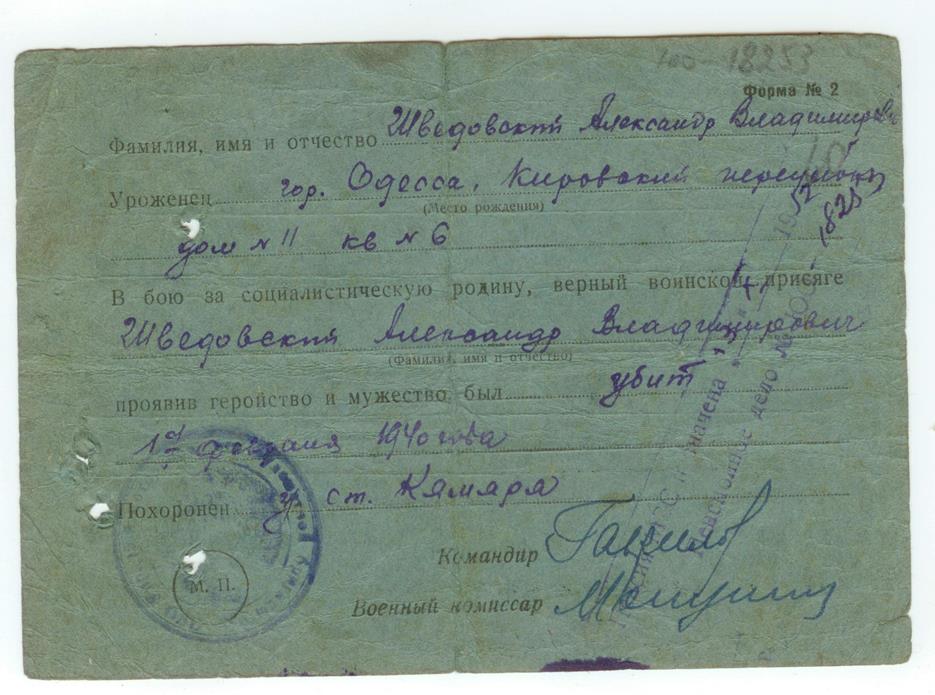 100-18253
Форма № 2
Фамилия, имя и отчество Шведовский Александр Владимирович
Уроженец гор. Одесса, Кировский переулок
(Место рождения)
дом N 11 кв N 6
В бою за социалистическую родину, верный воинской присяге
Шведовский Александр Владимирович
(Фамилия, имя и отчество)
проявив геройство и мужество был убит
17 февраля 1940 года
Похоронен у ст. Кямяря
Командир
Военный комиссар
М. П.
значена
дело №